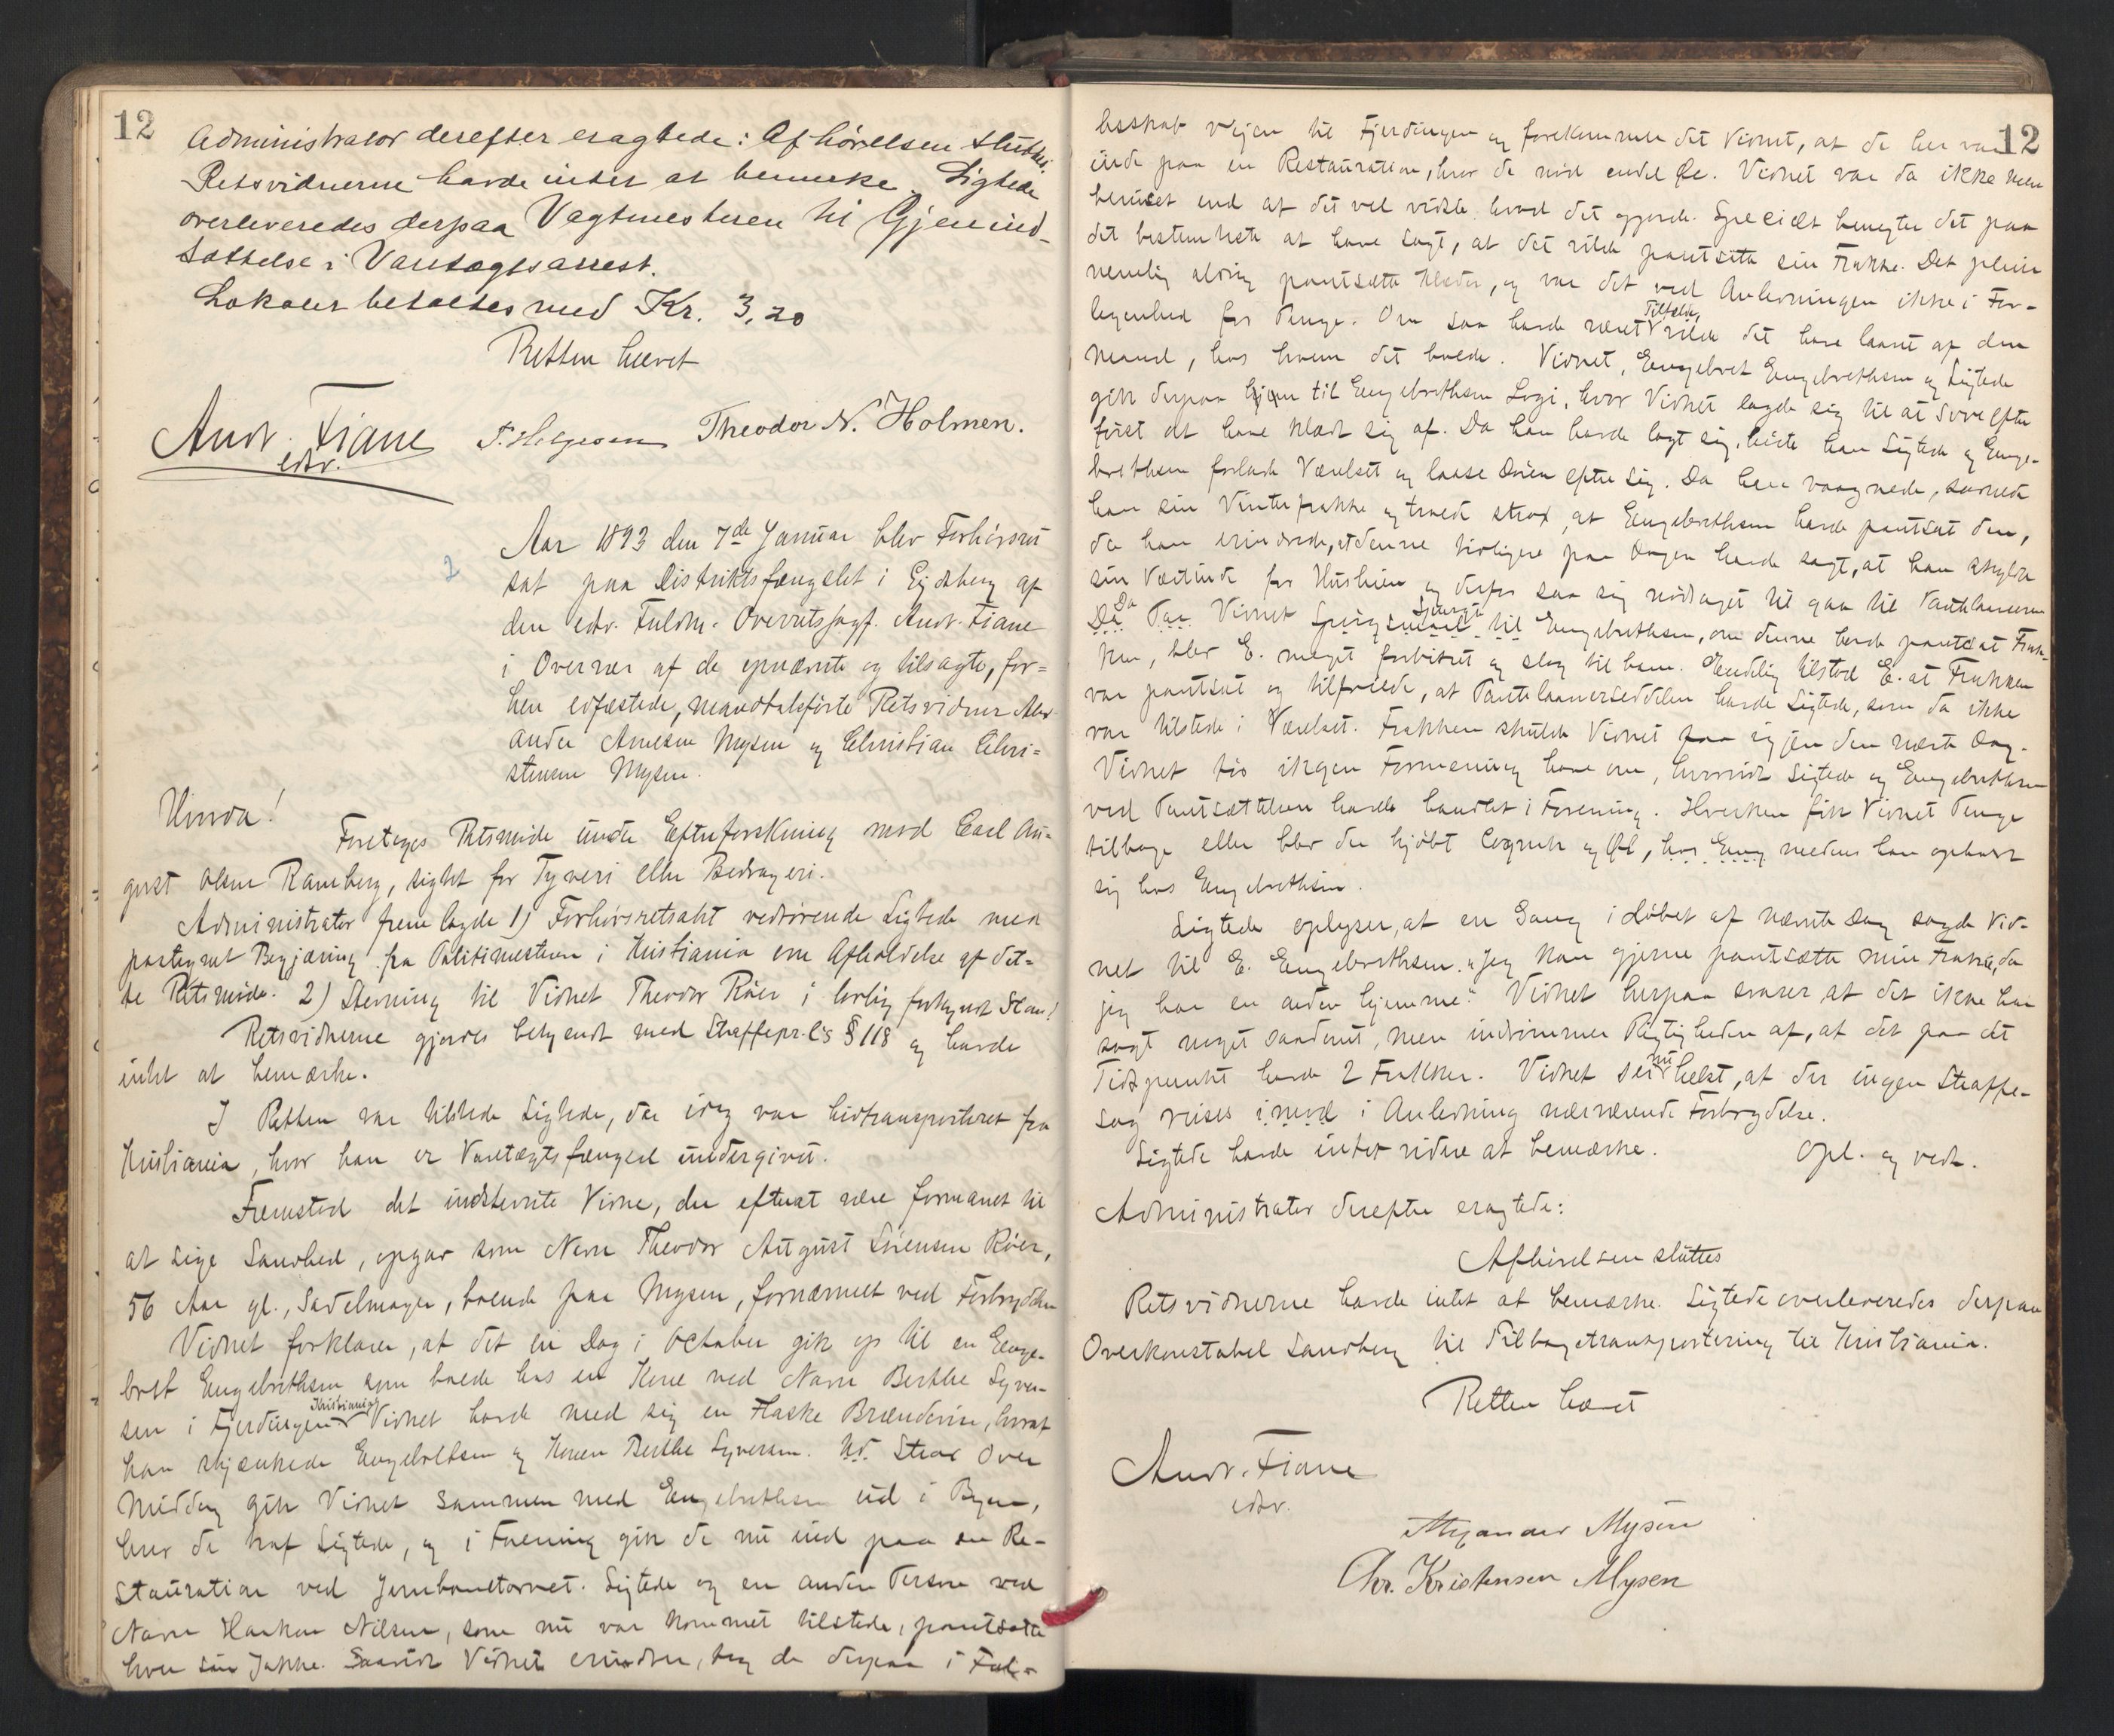 12
Administrator derefter eragtede: Afhørelsen sluttes.
Retsvidnerne havde intet at bemerke. Sigtede
overleveredes derpaa Vagtmesteren til Gjenind-
sættelse i Varetægtsarrest.
Lokalet betaltes med Kr. 3,20
Retten hævet
Andr. Fiane Theodor N. Holmen.
edsv.
2
Aar 1893 den 7de Januar blev Forhørsret
sat paa Distriktsfængslet i Eidsberg af
den edsv. Fuldm. Overretssagf. Andr. Fiane
i Overvær af de opnævnte og tilsagte, for-
hen edfæstede, mandtalsførte Retsvidner Alex-
ander Arnesen Mysen og Christian Chri-
stensen Mysen.
Hvorda!
Foretoges Retsmøde under Efterforskning mod Carl Au-
gust Olsen Ramberg, sigtet for Tyveri eller Bedrageri.
Administrator fremlagde 1) Forhørsretsakt vedrørende Sigtede med
paategnet Begjæring fra Politimesteren i Kristiania om Afholdelse af det-
te Retsmøde. 2) Stevning til Vidnet Theodor Røer i lovlig forkyndt Stand.
Retsvidnerne gjordes bekjendt med Straffepr.l's § 118 og havde
intet at bemærke.
I Retten var tilstede Sigtede, der idag var hidtransporteret fra
Kristiania, hvor han er Varetægtsfængsel undergivet.
Fremstod det indstevnte Vidne, der efterat være formanet til
at sige Sandhed, opgav som Navn Theodor August Sørensen Røer,
56 Aar gl., Sadelmager, boende paa Mysen, fornærmet ved Forbrydelsen
Vidnet forklarer, at det en Dag i October gik op til en Enge-
bret Engebrethsen som boede hos en Kone ved Navn Berthe Syver-
sen i Fjerdingen Kristiania. Vidnet havde med sig en Flaske Brændevin, hvoraf
han skjænkede Engebrethsen og Konen Berthe Syversen. Ud. Strax over
Middag gik Vidnet sammen med Engebrethsen ud i Byen,
hvor de traf Sigtede, og i Forening gik de nu ind paa en Re-
stauration ved Jernbanetorvet. Sigtede og en anden Person ved
Navn Haakon Nilsen, som nu var kommet tilstede, pantsatte
hver sin Jakke. Saavidt Vidnet erindrer, tog de derpaa i Føl-
12
lesskab veien til Fjerdingen og forekommer det Vidnet, at de her var
inde paa en Restauration, hvor de nød endel Øl. Vidnet var da ikke mere
beruset end at det vel vidste hvad det gjorde. Specielt benegter det paa
det bestemteste at have sagt, at det vilde pantsætte sin Frakke. Det pleier
nemlig aldrig pantsætte Klæder, og var det ved Anledningen ikke i For-
legenhed for Penge. Om saa havde været Tilfælde, vilde det have laant af den
Mand, hos hvem det boede. Vidnet, Engebret Engebrethsen og Sigtede
gik derpaa hjem til Engebrethsens Logi, hvor Vidnet lagde sig til at sove efter
først at have klædt sig af. Da han havde lagt sig, hørte han Sigtede og Enge-
brethsen forlade Værelset og laase Døren efter sig. Da han vaagnede, savnede
han sin Vinterfrakke og troede strax, at Engebrethsen havde pantsat den,
da han erindrede, at denne tidligere paa Dagen havde sagt, at han skyldte
sin Værtinde for Husleien og derfor saa sig nødsaget til at gaa til Pantelaaneren
Da Da Paa Vidnet Spørgsmaal spurgte til Engebrethsen, om denne havde pantsat Frak-
ken, blev E. meget forbitret og slog til ham. Endelig tilstod E. at Frakken
var pantsat og tilføiede, at Pantelaanerseddelen havde Sigtede, som da ikke
var tilstede i Værelset. Frakken skulde Vidnet faa igjen den næste Dag.
Vidnet tør ingen Formening have om, hvorvidt Sigtede og Engebrethsen
ved Pantsættelsen havde handlet i Forening. Hverken fik Vidnet Penge
tilbage eller blev der kjøbt Cognak og Øl, hos Eng medens han opholdt
sig hos Engebrethsen.
Sigtede oplyser, at en Gang i Løbet af nævnte Dag sagde Vid-
net til E. Engebrethsen: "Jeg kan gjerne pantsætte min Frakke, da
jeg har en anden hjemme." Vidnet herpaa svarer, at det ikke har
sagt noget saadant, men indrømmer Rigtigheden af, at det paa det
Tidspunkt havde 2 Frakker. Vidnet ser nu helst, at der ingen Straffe-
sag reises imod i Anledning nærværende Forbrydelse.
Sigtede havde intet videre at bemærke. Opl. og vedt.
Administrator derefter eragtede:
Afhørelsen sluttes
Retsvidnerne havde intet at bemærke. Sigtede overleveredes derpaa
Overkonstabel Sandberg til Tilbagetransportering til Kristiania.
Retten hævet
Andr. Fiane
edsv.
Alexander Mysen
Chr. Kristensen Mysen